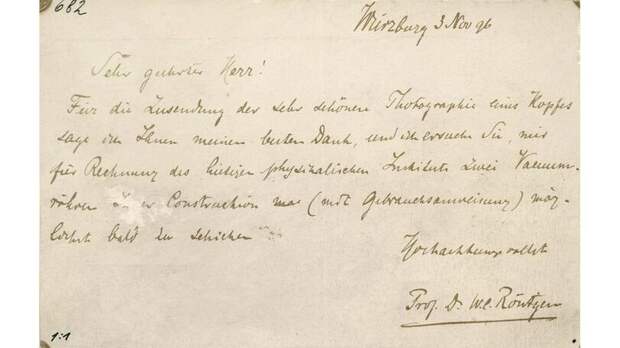 682
Würzburg 3 Nov 96
Sehr geehrter Herr!
Für die Zusendung der sehr schönen Photographie eines Kopfes
sage ich Ihnen meinen besten Dank, und ich ersuche Sie, mir
für Rechnung des hiesigen physikalischen Instituts zwei Vacuum-
röhren Construction (mit Gebrauchsanweisung) mög-
lichst bald zu schicken
Hochachtungsvollst
Prof. Dr W. C. Röntgen
1:1